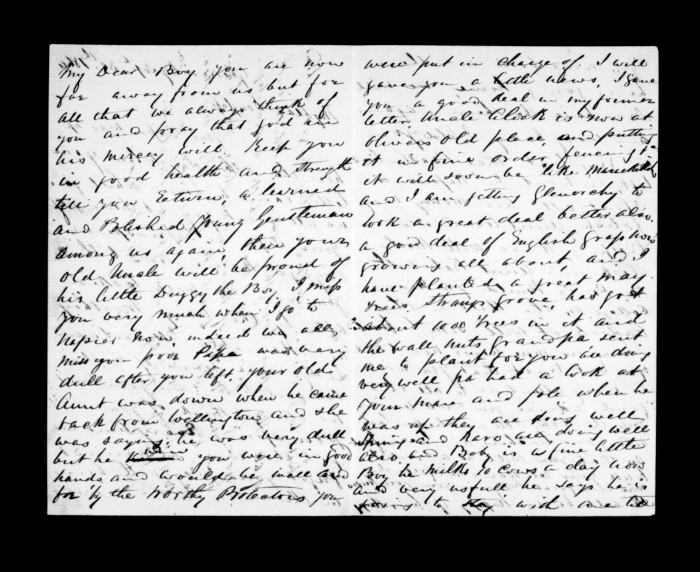 My Dear Boy you are now
far away from us but for
all that we always think of
you and pray that god in
his mercey will Keep you
in good health and strength
till you Return, a learned
and Polished Young Gentleman
among us again, then your
old Uncle will be proud of
his little Duggy the Boy, I miss
you very much when I go to
Napier now, indeed we all
miss you poor Papa was very
dull after you left. your old
Aunt was down when he came
back from Wellington and she
was saying he was very dull
but he you were in good
hands and would be well and
for by the Worthy Protectors you
were put in charge of. I will
gave you a little news, I gave
you a good deal in my former
letter Uncle is now at
old place, and putting
it in fine order, fencing it
it will soon be like
and I am getting Glenorchy to
look a great deal better also.
a good deal of English grass now
growing all about, and I
have planted a great many
trees. grove, has got
about 1000 Trees in it and
the wall nuts grandpa, sent
me to plant for you are doing
very well, pa had a look at
your mare and fole when he
was up they are doing well
and hero are doing well
also and Boby is a fine little
Boy he milks 10 cows a day now
and very usfull he says he is
to with me till